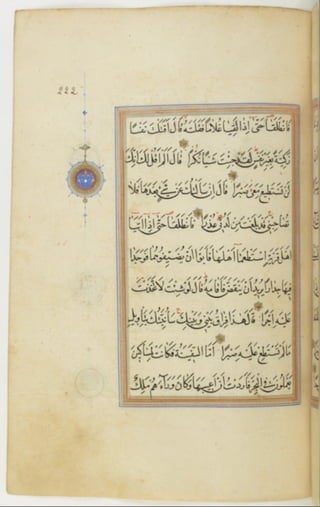 222
فَانْطَلَقَا حَتَّى إِذَا لَقِيَا غُلَامًا فَقَتَلَهُ قَالَ أَقَتَلْتَ نَفْسًا
زَكِيَّةً بِغَيْرِ نَفْسٍ لَقَدْ جِئْتَ شَيْئًا نُكْرًا قَالَ أَلَمْ أَقُلْ لَكَ إِنَّكَ
لَنْ تَسْتَطِيعَ مَعِيَ صَبْرًا قَالَ إِنْ سَأَلْتُكَ عَنْ شَيْءٍ بَعْدَهَا فَلَا
تُصَاحِبْنِي قَدْ بَلَغْتَ مِنْ لَدُنِّي عُذْرًا فَانْطَلَقَا حَتَّى إِذَا أَتَيَا
أَهْلَ قَرْيَةٍ اسْتَطْعَمَا أَهْلَهَا فَأَبَوْا أَنْ يُضَيِّفُوهُمَا فَوَجَدَا
فِيهَا جِدَارًا يُرِيدُ أَنْ يَنْقَضَّ فَأَقَامَهُ قَالَ لَوْ شِئْتَ لَاتَّخَذْتَ
عَلَيْهِ أَجْرًا قَالَ هَذَا فِرَاقُ بَيْنِي وَبَيْنِكَ سَأُنَبِّئُكَ بِتَأْوِيلِ
مَا لَمْ تَسْتَطِعْ عَلَيْهِ صَبْرًا أَمَّا السَّفِينَةُ فَكَانَتْ لِمَسَاكِينَ
يَعْمَلُونَ فِي الْبَحْرِ فَأَرَدْتُ أَنْ أَعِيبَهَا وَكَانَ وَرَاءَهُمْ مَلِكٌ